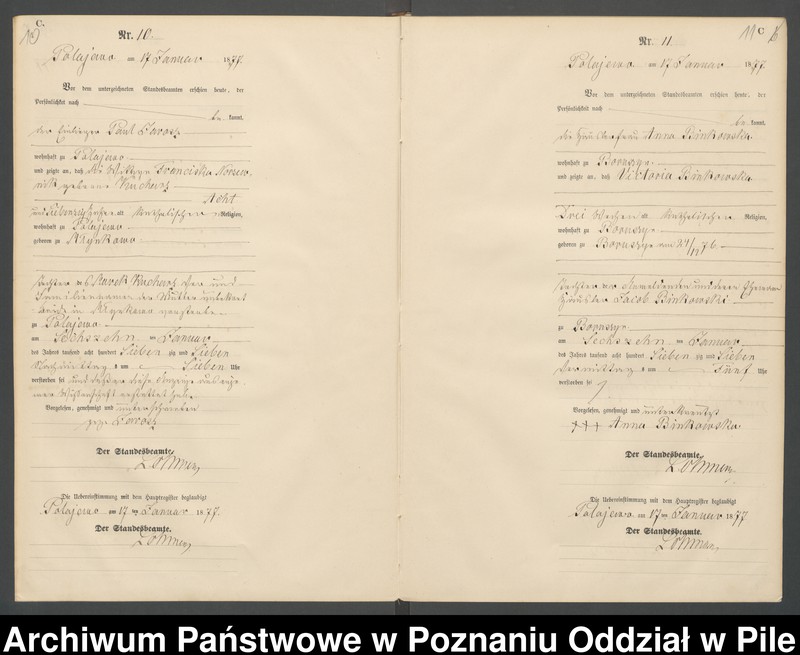 C.
Nr. 10.
Polajewo am 17 Januar 1877.
Vor dem unterzeichneten Standesbeamten erschien heute, der
Persönlichkeit nach
be kannt,
der Einlieger Paul
wohnhaft zu Polajewo
und zeigte an, daß die Wittwe Franciska
geborene
Acht
und Siebenzig Jahre alt, katholischer Religion,
wohnhaft zu Polajewo
geboren zu
Tochter des der und
der Mutter
beide in verstorben
zu Polajewo
am Sechszehn ten Januar
des Jahres tausend acht hundert Sieben zig und Sieben
Nachmittag s um Sieben Uhr
verstorben sei und daß er diese Anzeige aus eige
ner Wissenschaft erstattet habe.
Vorgelesen, genehmigt und unterschrieben
gez.
Der Standesbeamte.
Die Uebereinstimmung mit dem Hauptregister beglaubigt
Polajewo am 17 ten Januar 1877.
Der Standesbeamte.
C
Nr. 11
Polajewo am 17 Januar 1877.
Vor dem unterzeichneten Standesbeamten erschien heute, der
Persönlichkeit nach
be kannt,
die Häuslerfrau Anna Binkowska
wohnhaft zu Boruszyn
und zeigte an, daß Victoria Binkowska
Drei Wochen alt, katholischer Religion,
wohnhaft zu Boruszyn
geboren zu Boruszyn am
Tochter der Anmeldenden und deren Ehemann
Häusler Jacob Binkowski
zu Boruszyn
am Sechszehn ten Januar
des Jahres tausend acht hundert Sieben zig und Sieben
Vormittag s um Fünf Uhr
verstorben sei
Vorgelesen, genehmigt und unterkreuzt
+++ Anna Binkowska
Der Standesbeamte.
Die Uebereinstimmung mit dem Hauptregister beglaubigt
Polajewo am 17 ten Januar 1877.
Der Standesbeamte.
Archiwum Państwowe w Poznaniu Oddział w Pile